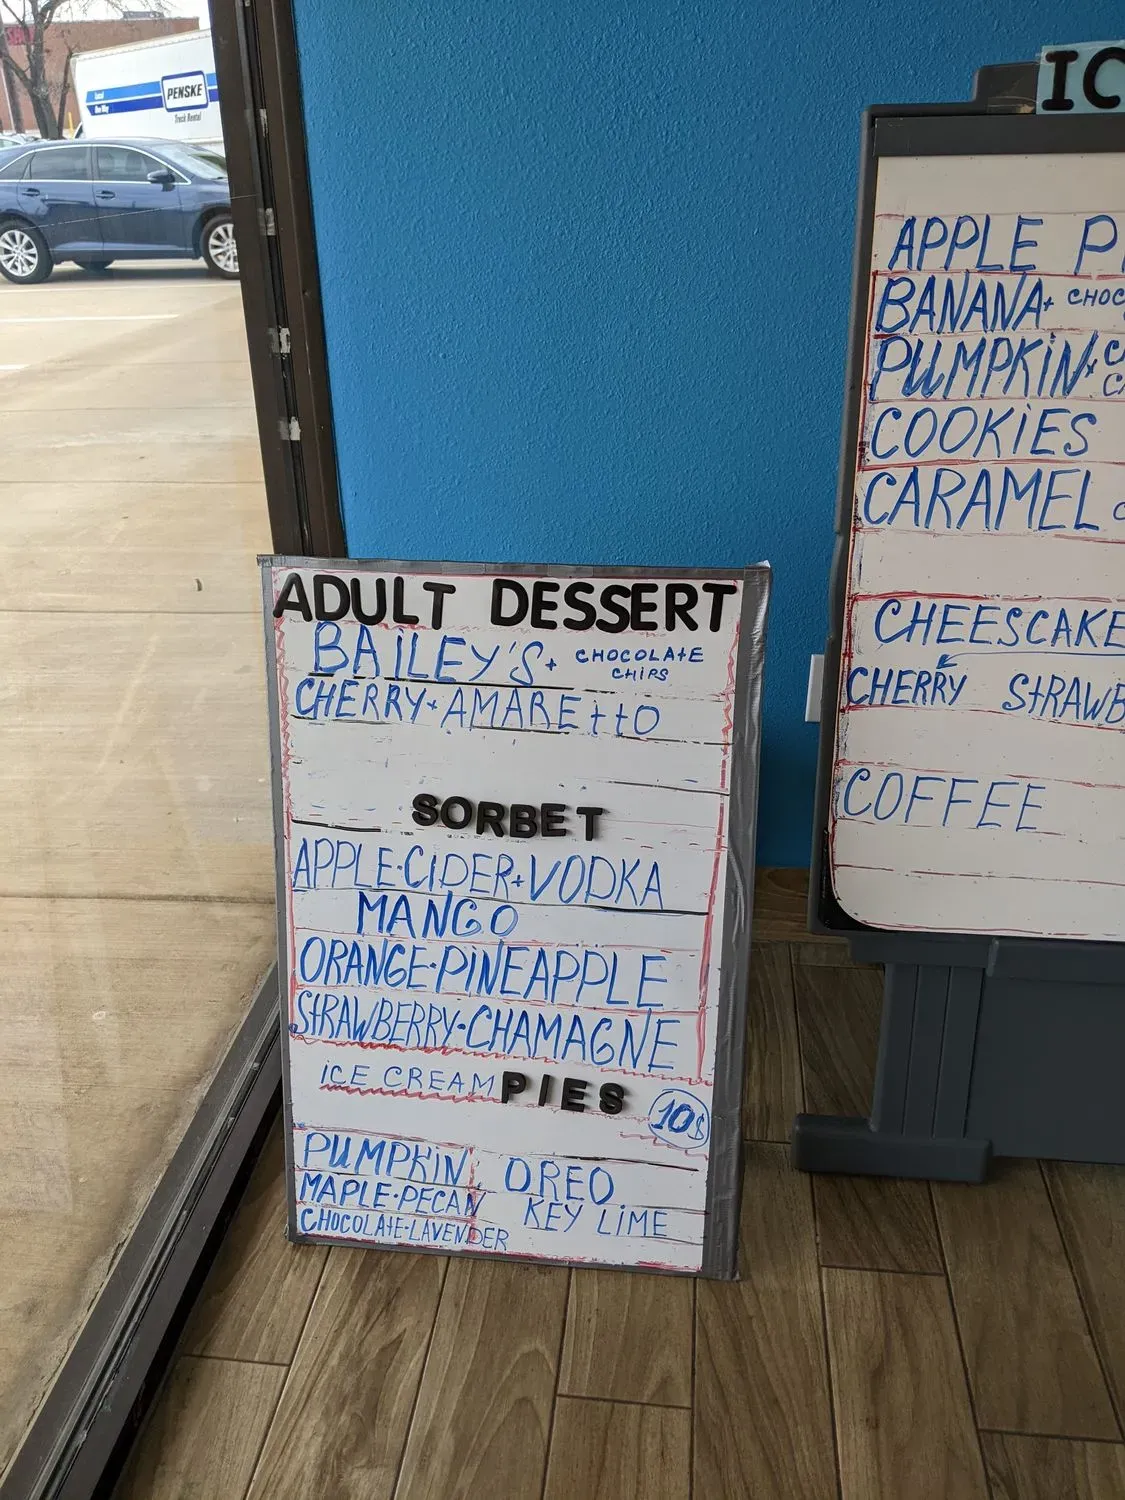 PENSKE
Truck Rental
ADULT DESSERT
BAiLEY'S + CHOCOLAtE CHiPS
CHERRY + AMAREttO
SORBET
APPLE-CIDER + VODKA
MANGO
ORANGE-PiNEAPPLE
StRAWBERRY-CHAMAGNE
iCE CREAM PIES 10$
PUMPKiN OREO
MAPLE-PECAN KEY LiME
CHOCOLAtE-LAVENDER
IC
APPLE P
BANANA + CHOC
PUMPKiN +
COOKiES
CARAMEL
CHEESCAKE
CHERRY StRAWB
COFFEE